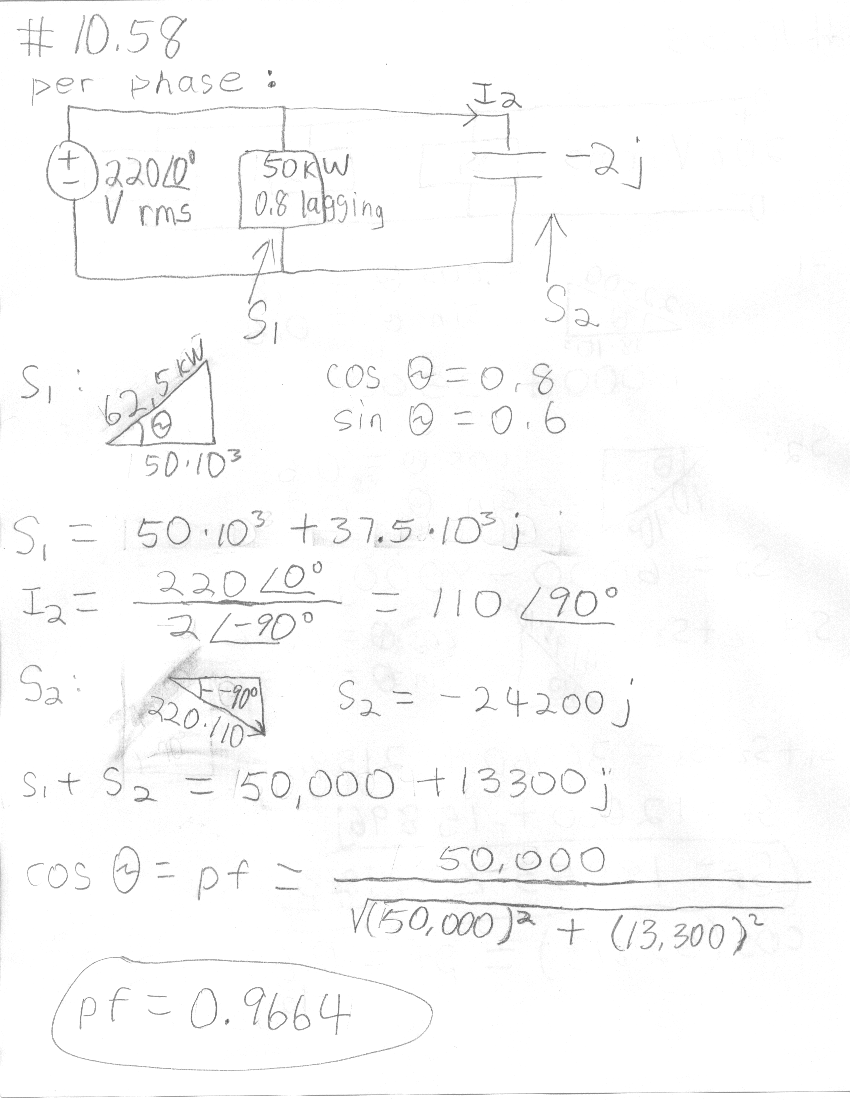 # 10.58
per phase:
I₂
+
−
220∠0°
V rms
50kW
0.8 lagging
-2j
S₁
S₂
S₁:
62.5 kW
θ
50·10³
cos θ = 0.8
sin θ = 0.6
S₁ = 50·10³ + 37.5·10³ j
I₂ = 220∠0° / 2∠-90° = 110 ∠90°
S₂:
-90°
220·110
S₂ = -24200j
S₁ + S₂ = 50,000 + 13300j
cos θ = pf = 50,000 / √(50,000)² + (13,300)²
pf = 0.9664